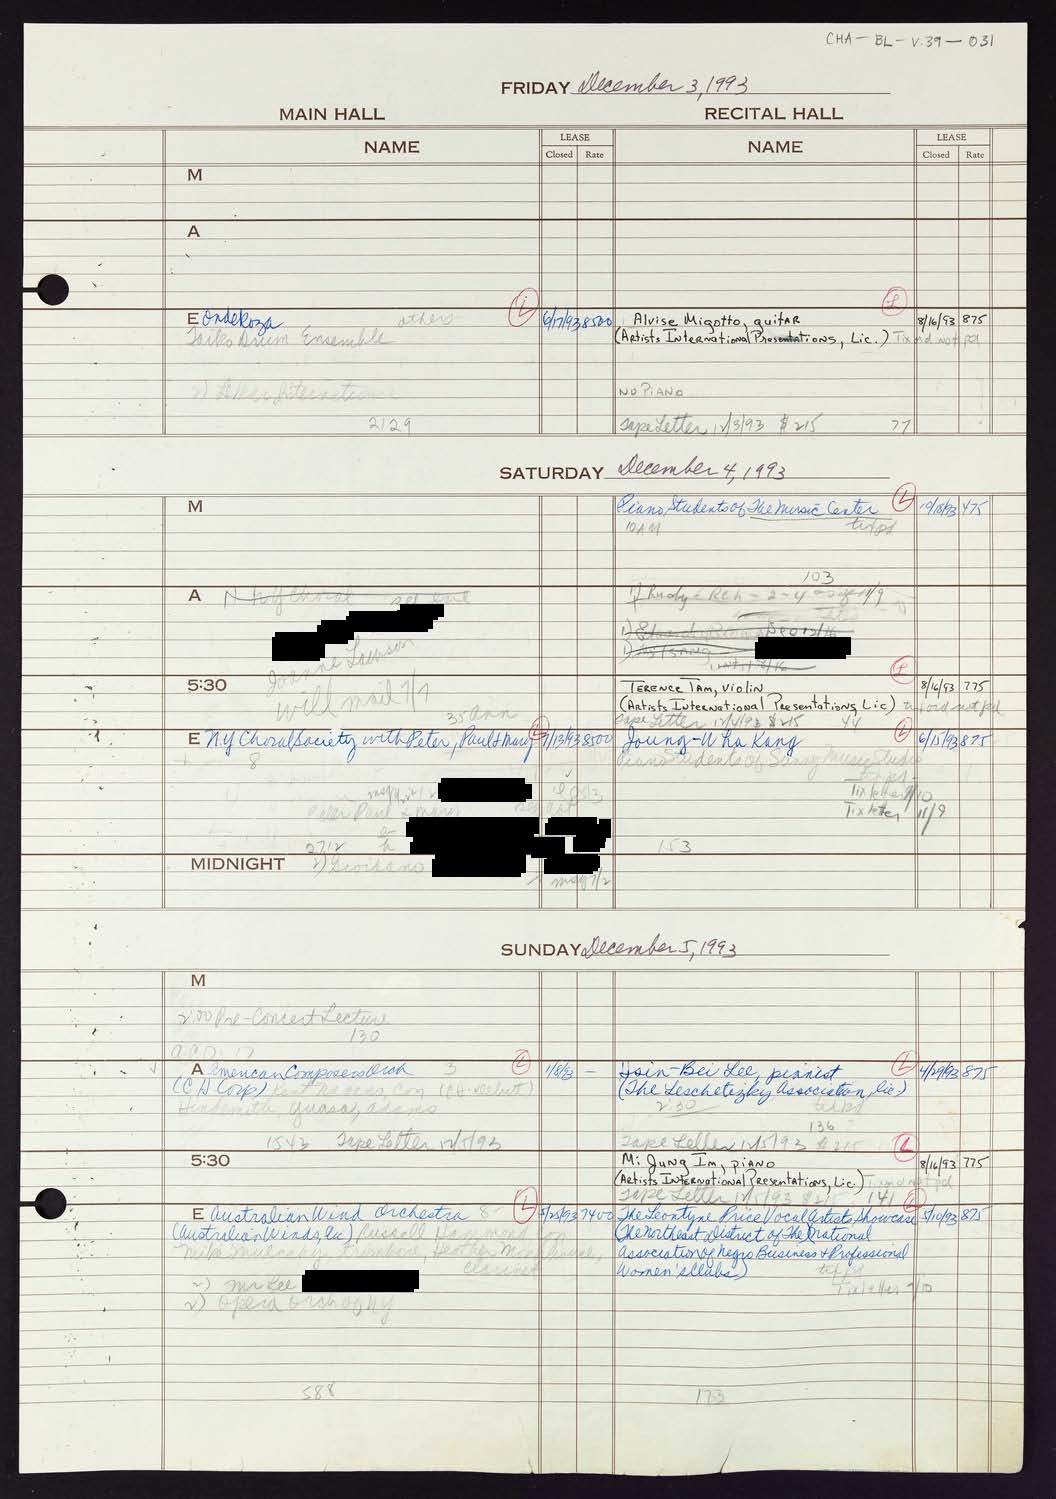 CHA-BL-V.39-031
FRIDAY December 3, 1993
MAIN HALL RECITAL HALL
NAME LEASE Closed Rate NAME LEASE Closed Rate
M
A
E Ondekoza others L 6/17/93 8500
Taiko Drum Ensemble
2129
L
Alvise Migotto, guitar 8/16/93 875
(Artists International Presentations, Inc.) Tix ord not pd
NO PIANO
Tape Letter 12/3/93 $215 77
SATURDAY December 4, 1993
M
Piano Students of The Music Center L 10/8/93 475
10 AM tix pd
103
A NY Choral
Joanne Lawson
will mail 7/7
1) Rudy - Reh - 2-4 11/9
5:30
L
Terence Tam, violin 8/16/93 775
(Artists International Presentations, Inc) tix ord not pd
Tape Letter 12/4/93 $215 44
E NY Choral Society with Peter, Paul & Mary L 7/13/93 8500
8
Peter Paul & Mary
2712
Joung-Wha Kang L 6/15/93 875
Piano Students of Sunny Music Studio
tix pd
Tix letter 9/10
Tix letter 11/9
153
MIDNIGHT 2) Giordano
msg 7/2
SUNDAY December 5, 1993
M
2:00 Pre-Concert Lecture
130
A American Composers Orch 3 L 1/8/93 -
(CH Corp) Kent Nagano, Con (CH debut)
Hindemith, Quasay, Adams
1543 Tape Letter 12/5/93
Hsin-Bei Lee, pianist L 4/29/93 875
(The Leschetizky Association, Inc)
2:30 tix pd
136
Tape Letter 12/5/93 $215
5:30
L
Mi Jung Im, piano 8/16/93 775
(Artists International Presentations, Inc.) Tix ord not pd
Tape Letter 12/5/93 $215 141
E Australian Wind Orchestra 8 L 5/25/93 7400
(Australian Winds, Inc) Russell Hammond
clarinet
2) Mr Lee
2) Opera Orch of NY
588
The Leontyne Price Vocal Artists Showcase L 5/10/93 875
(The Northeast District of The National
Association of Negro Business & Professional
Women's Clubs)
tix pd
Tix letter 9/10
173